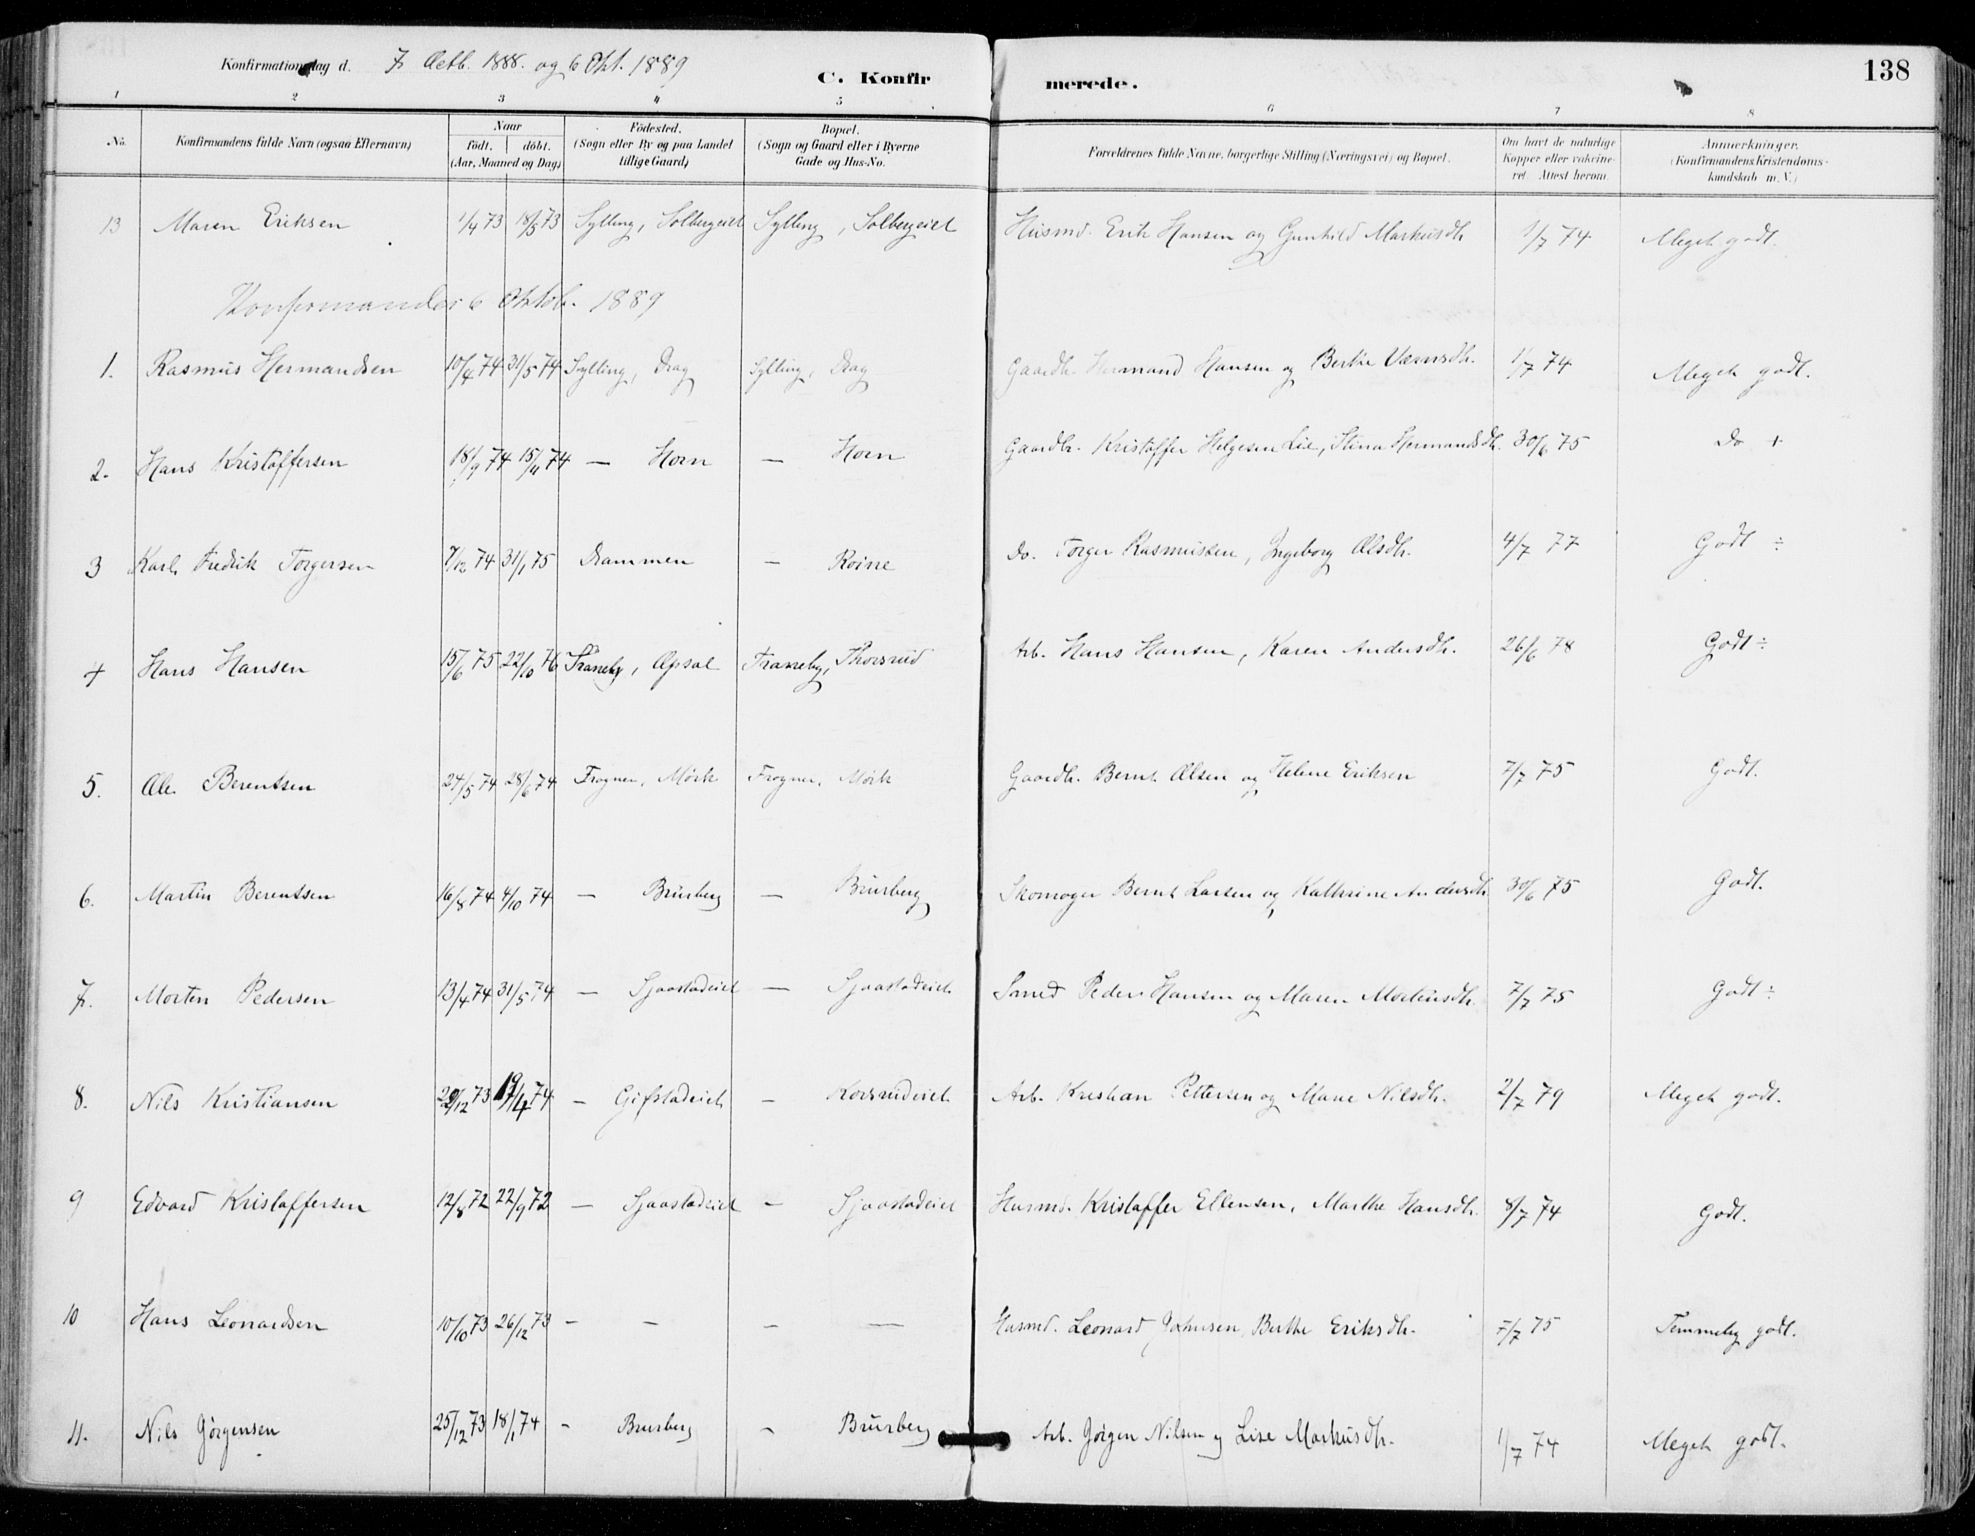 138
Konfirmationsdag d. 7 Octb. 1888. og 6 Okt. 1889
C. Konfirmerede.
1 2 3 4 5 6 7 8
No. Konfirmandens fulde Navn (ogsaa Efternavn) Naar födt. döbt. (Aar, Maaned og Dag) Födested. (Sogn eller By og paa Landet tillige Gaard) Bopæl. (Sogn og Gaard eller i Byerne Gade og Hus-No. Forældrenes fulde Navne, borgerlige Stilling (Næringsvei) og Bopæl. Om havt de naturlige Kopper eller vakcineret. Attest herom. Anmærkninger. (Konfirmandens Kristendomskundskab m. V.)
13 Maren Eriksen 1/4 73 18/5 73 Sylling, Solbergeiet Sylling, Solbergeiet Husmd. Erik Hansen og Gunhild Markusdtr 1/7 74 Meget godt.
Konfirmander 6 Oktob. 1889
1. Rasmus Hermandsen 10/4 74 31/5 74 Sylling, Drag Sylling, Drag Gaardbr. Hermand Hansen og Berthe 1/7 74 Meget godt.
2. Hans Kristoffersen 18/9 74 15/11 74 — Horn — Horn Gaardbr. Kristoffer Helgesen Lie, Stina Hermandsdtr. 30/6 75 Do +
3 Karl Fredrik Torgersen 7/12 74 31/1 75 Drammen — Roine Do. Torger Rasmussen, Ingeborg Olsdtr. 4/7 77 Godt ÷
4 Hans Hansen 15/6 75 22/10 76 Traneby, Opsal Traneby, Thorsrud Arb. Hans Hansen, Karen Andersdtr. 26/6 78 Godt ÷
5. Ole Berentsen 24/5 74 28/6 74 Frogner, Mörk Frogner, Mörk Gaardbr. Bernt Olsen og Helene Eriksen 7/7 75 Godt.
6. Martin Berentsen 16/8 74 4/10 74 — Brusberg — Brusberg Skomager Bernt Larsen og Kathrine Andersdtr 30/6 75 Godt.
7. Morten Pedersen 13/4 74 31/5 74 — Sjaastadeiet — Sjaastadeiet Smed Peder Hansen og Maren Mortensdtr. 7/7 75 Godt ÷
8. Nils Kristiansen /12 73 /4 74 — Gifstadeiet — Korsrudeiet Arb. Kristian Pettersen og Marie Nilsdtr. 2/7 79 Meget godt.
9 Edvard Kristoffersen 12/8 72 22/9 72 — Sjaastadeiet — Sjaastadeiet Husmd. Kristoffer Ellensen, Marthe Hansdtr. 8/7 74 Godt.
10 Hans Leonardsen 10/10 73 26/12 73 — — — — Husmd. Leonard Johnsen, Berthe Eriksdtr. 7/7 75 Temmelig godt.
11. Nils Görgensen 25/12 73 18/1 74 — Brusberg — Brusberg Arb. Jörgen Nilsen og Lise Markusdtr. 1/7 74 Meget godt.